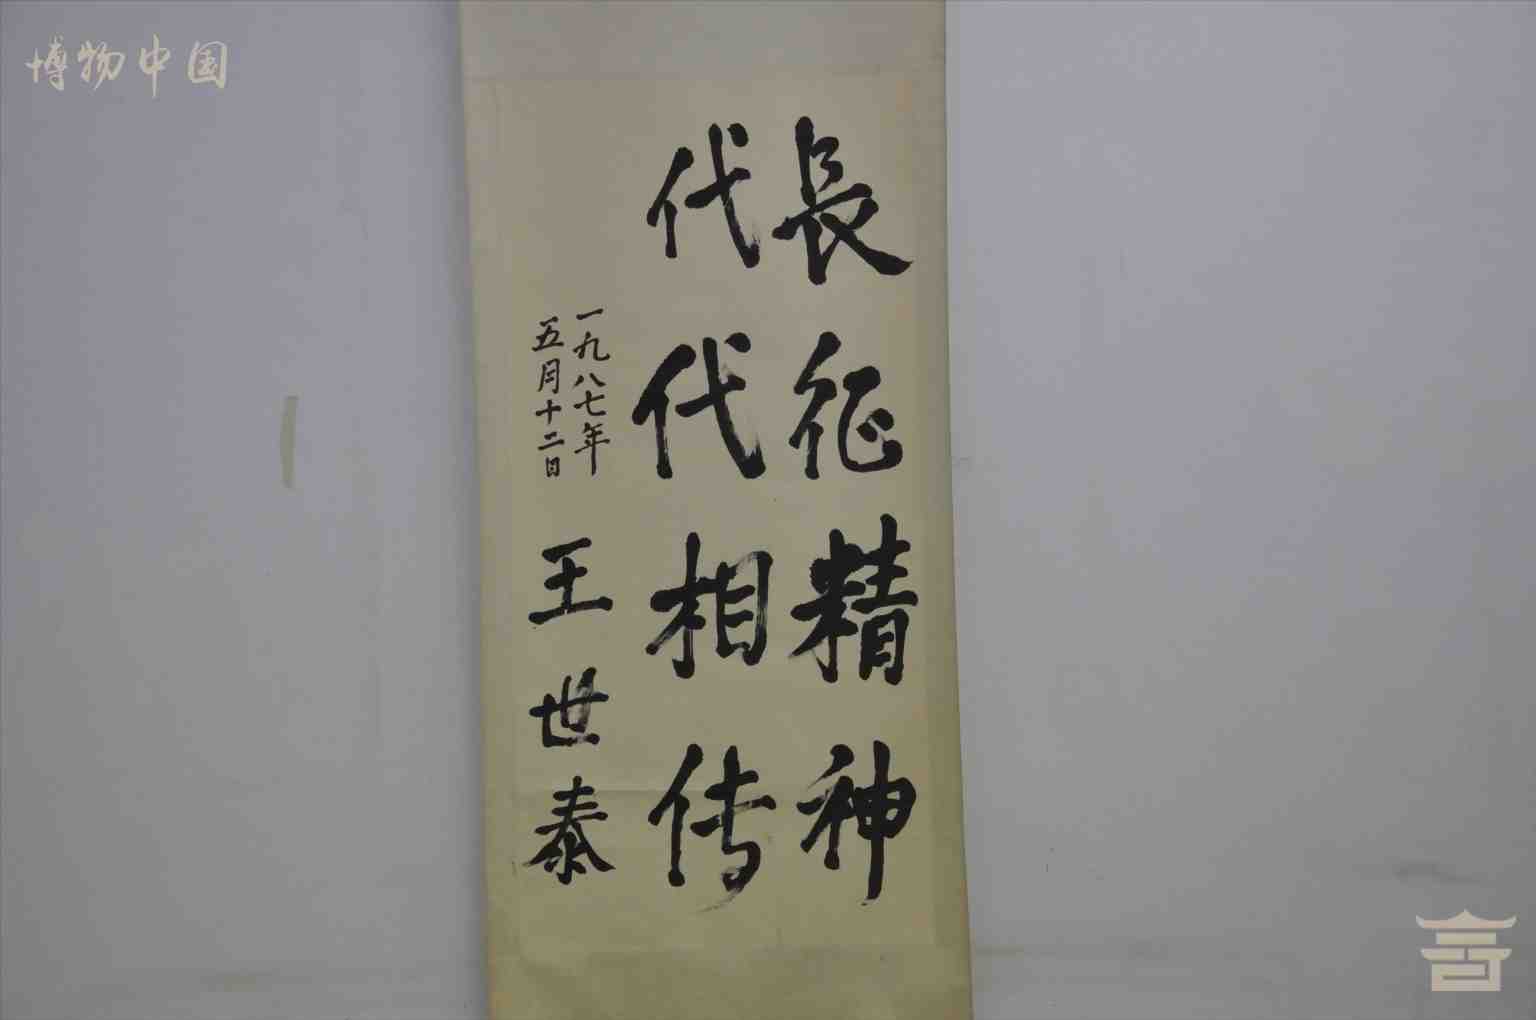 長征精神
代代相传
一九八七年
五月十二日
王世泰
博物中国